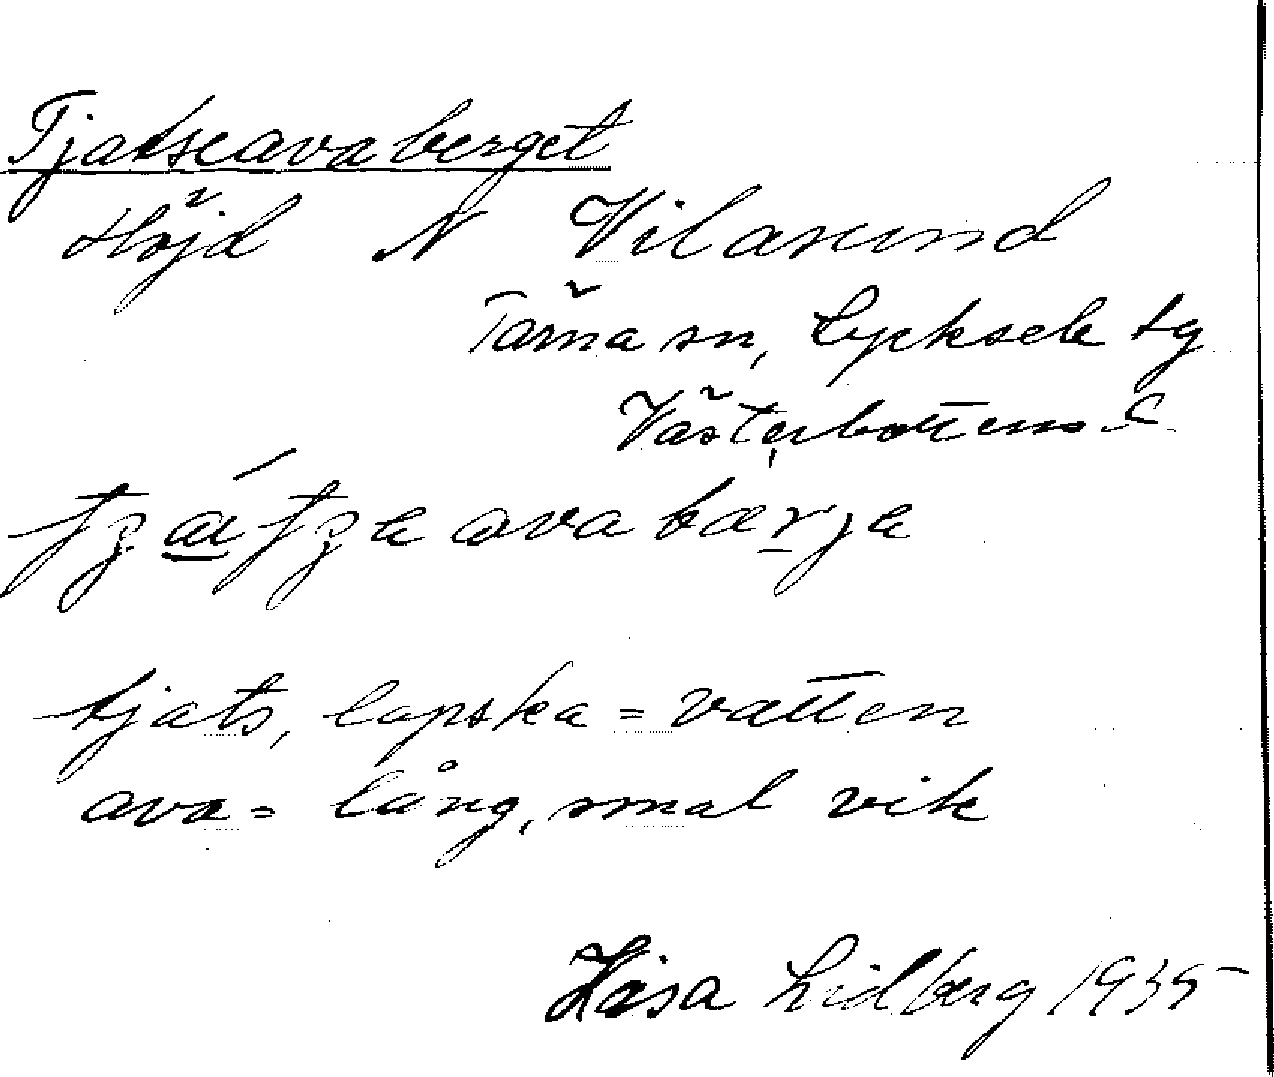 Tjatseavaberget
Höjd N Vilasund
Tärna sn, Lycksele tg
Västerbottens l.
avabærja
tjats, lapska = vatten
ava = lång, smal vik
Lidberg 1935